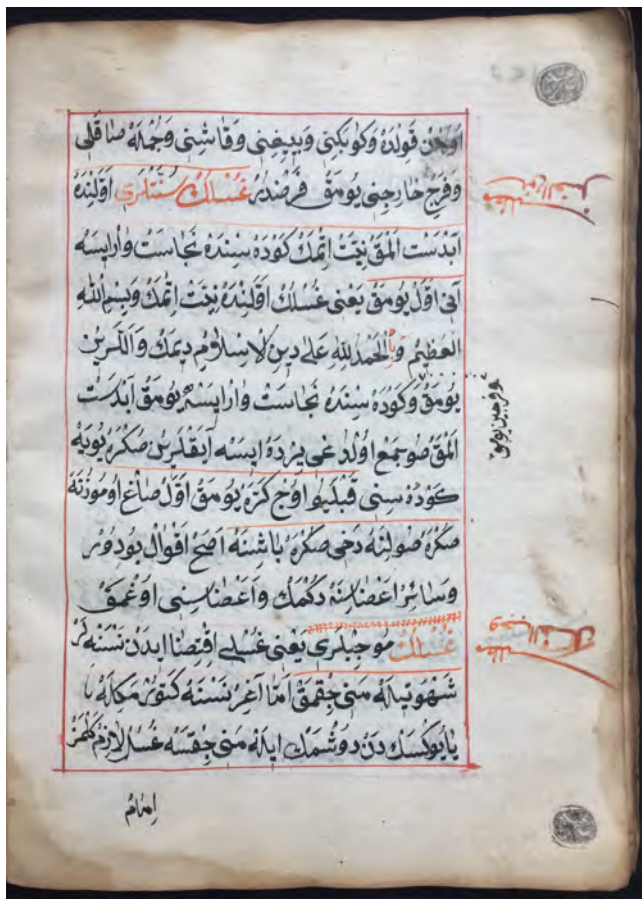 اوجن قولده وكوبكنى وبيغنى وقاشنى وجمله صاقلى
وفرج خارجنى يومق فرضدر غسلك سنتلرى اولنده
آبدست المق نيت اتمك كوده سنده نجاست وارايسه
آنى اول يومق يعنى غسلك اولنده نيت اتمك وبسم الله
العظيم والحمد لله على دين الاسلام ديمك واللرين
يومق وكوده سنده نجاست وارايسه يومق آبدست
المق صو جمع اولدغى يرده ايسه آيقلرين صكره يويه
كوده سنى قپليو اوج كره يومق اول صاغ اوموزنه
صكره صولنه دخى صكره باشنه اصح اقوال بودور
وسائر اعضاسنه دكمك واعضاسنى اوغمق
غسلك موجبلرى يعنى غسلى اقتضا ايدن نسنه لر
شهوتيله منى چقمق اما آغر نسنه كتورمكله يا
يايوكسك دن دوشمك ايله منى چقسه غسل لازم كلمز
امام
و فرجين يومق